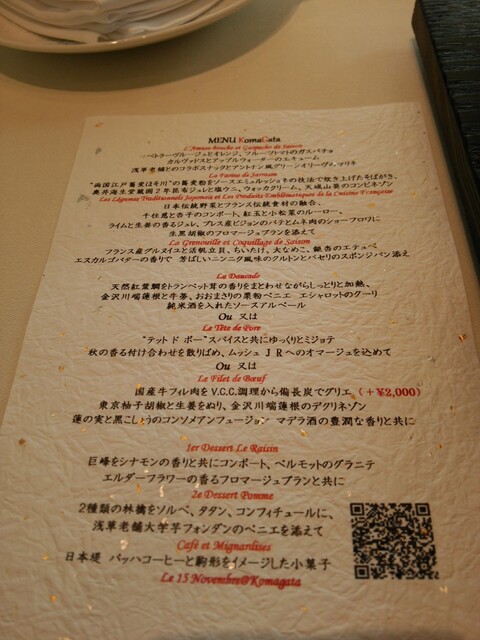 MENU KomaGata
L'Amuse-bouche et Gaspacho de Saison
ベトラーヴルージュとオレンジ、フルーツトマトのガスパチョ
カルヴァドスとアップルウォーターのエキューム
浅草老舗とのコラボスナックとアントナン風グリーンオリーヴ、マリネ
La Farine de Sarrasin
"両国江戸蕎麦ほそ川"の蕎麦粉をソースエミュルッショネの技法で炊き上げたそばがき、
奥井海生堂蔵囲2年昆布ジュレと塩ウニ、ウォッカクリーム、天城山葵のコンビネゾン
Les Légumes Traditionnels Japonais et Les Produits Emblématiques de la Cuisine Française
日本伝統野菜とフランス伝統食材の融合、
千住葱と杏子のコンポート、紅玉と小松菜のルーロー、
ライムと生姜の香るジュレ、ブレス産ピジョンのパテとムール貝のショーフロワに
生黒胡椒のフロマージュブランを添えて
La Grenouille et Coquillage de Saison
フランス産グルヌイユと活帆立貝、ちいたけ、大なめこ、銀杏のエテュベ
エスカルゴバターの香りで 芳ばしいニンニク風味のクルトンとパセリのスポンジパン添え
La Daurade
天然紅葉鯛をトランペット茸の香りをまとわせながらしっとりと加熱、
金沢川端蓮根と牛蒡、おおまさりの栗粉ベニエ エシャロットのクーリ
純米酒を入れたソースアルベール
Ou 又は
Le Tête de Porc
"テット ド ポー"スパイスと共にゆっくりとミジョテ
秋の香る付け合わせを散りばめ、ムッシュ J R へのオマージュを込めて
Ou 又は
Le Filet de Bœuf
国産牛フィレ肉をV.C.C.調理から備長炭でグリエ、(+¥2,000)
東京柚子胡椒と生姜をぬり、金沢川端蓮根のデクリネゾン
蓮の実と黒こしょうのコンソメアンフュージョン マデラ酒の豊潤な香りと共に
1er Dessert Le Raisin
巨峰をシナモンの香りと共にコンポート、ベルモットのグラニテ
エルダーフラワーの香るフロマージュブランと共に
2e Dessert Pomme
2種類の林檎をソルベ、タタン、コンフィチュールに、
浅草老舗大学芋フォンダンのベニエを添えて
Café et Mignardises
日本堤 バッハコーヒーと駒形をイメージした小菓子
Le 15 Novembre@Komagata